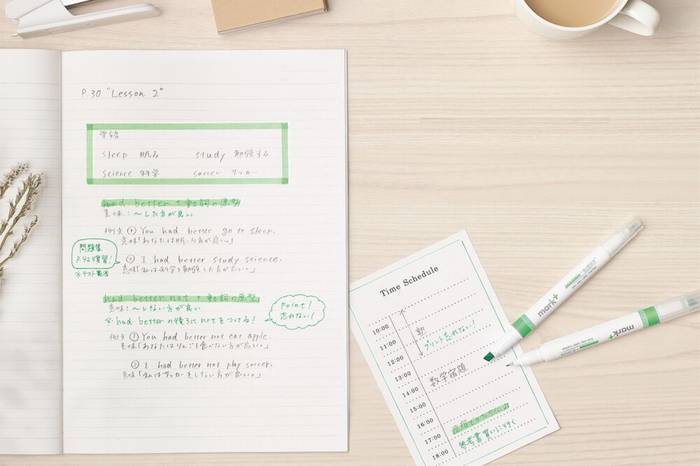 P.30 "Lesson 2"
単語
sleep 眠る study 勉強する
science 科学 soccer サッカー
had better + 動詞の原形
意味:〜した方が良い
例文 ① You had better go to sleep.
意味「あなたは眠った方が良い」
問題集
P.42復習!
② I had better study science.
意味「私は科学を勉強した方がよい」
had better not + 動詞の原形
意味:〜しない方が良い
Point!
忘れない!
had betterの後ろにnotをつける!
例文 ① You had better not eat apple.
意味「あなたはりんごを食べない方が良い」
② I had better not play soccer.
意味「私はサッカーをしない方が良い」
Time Schedule
10:00
11:00
プリント忘れない!
12:00
13:00
数学宿題
14:00
15:00
16:00
17:00
参考書
18:00
mark+
mark+